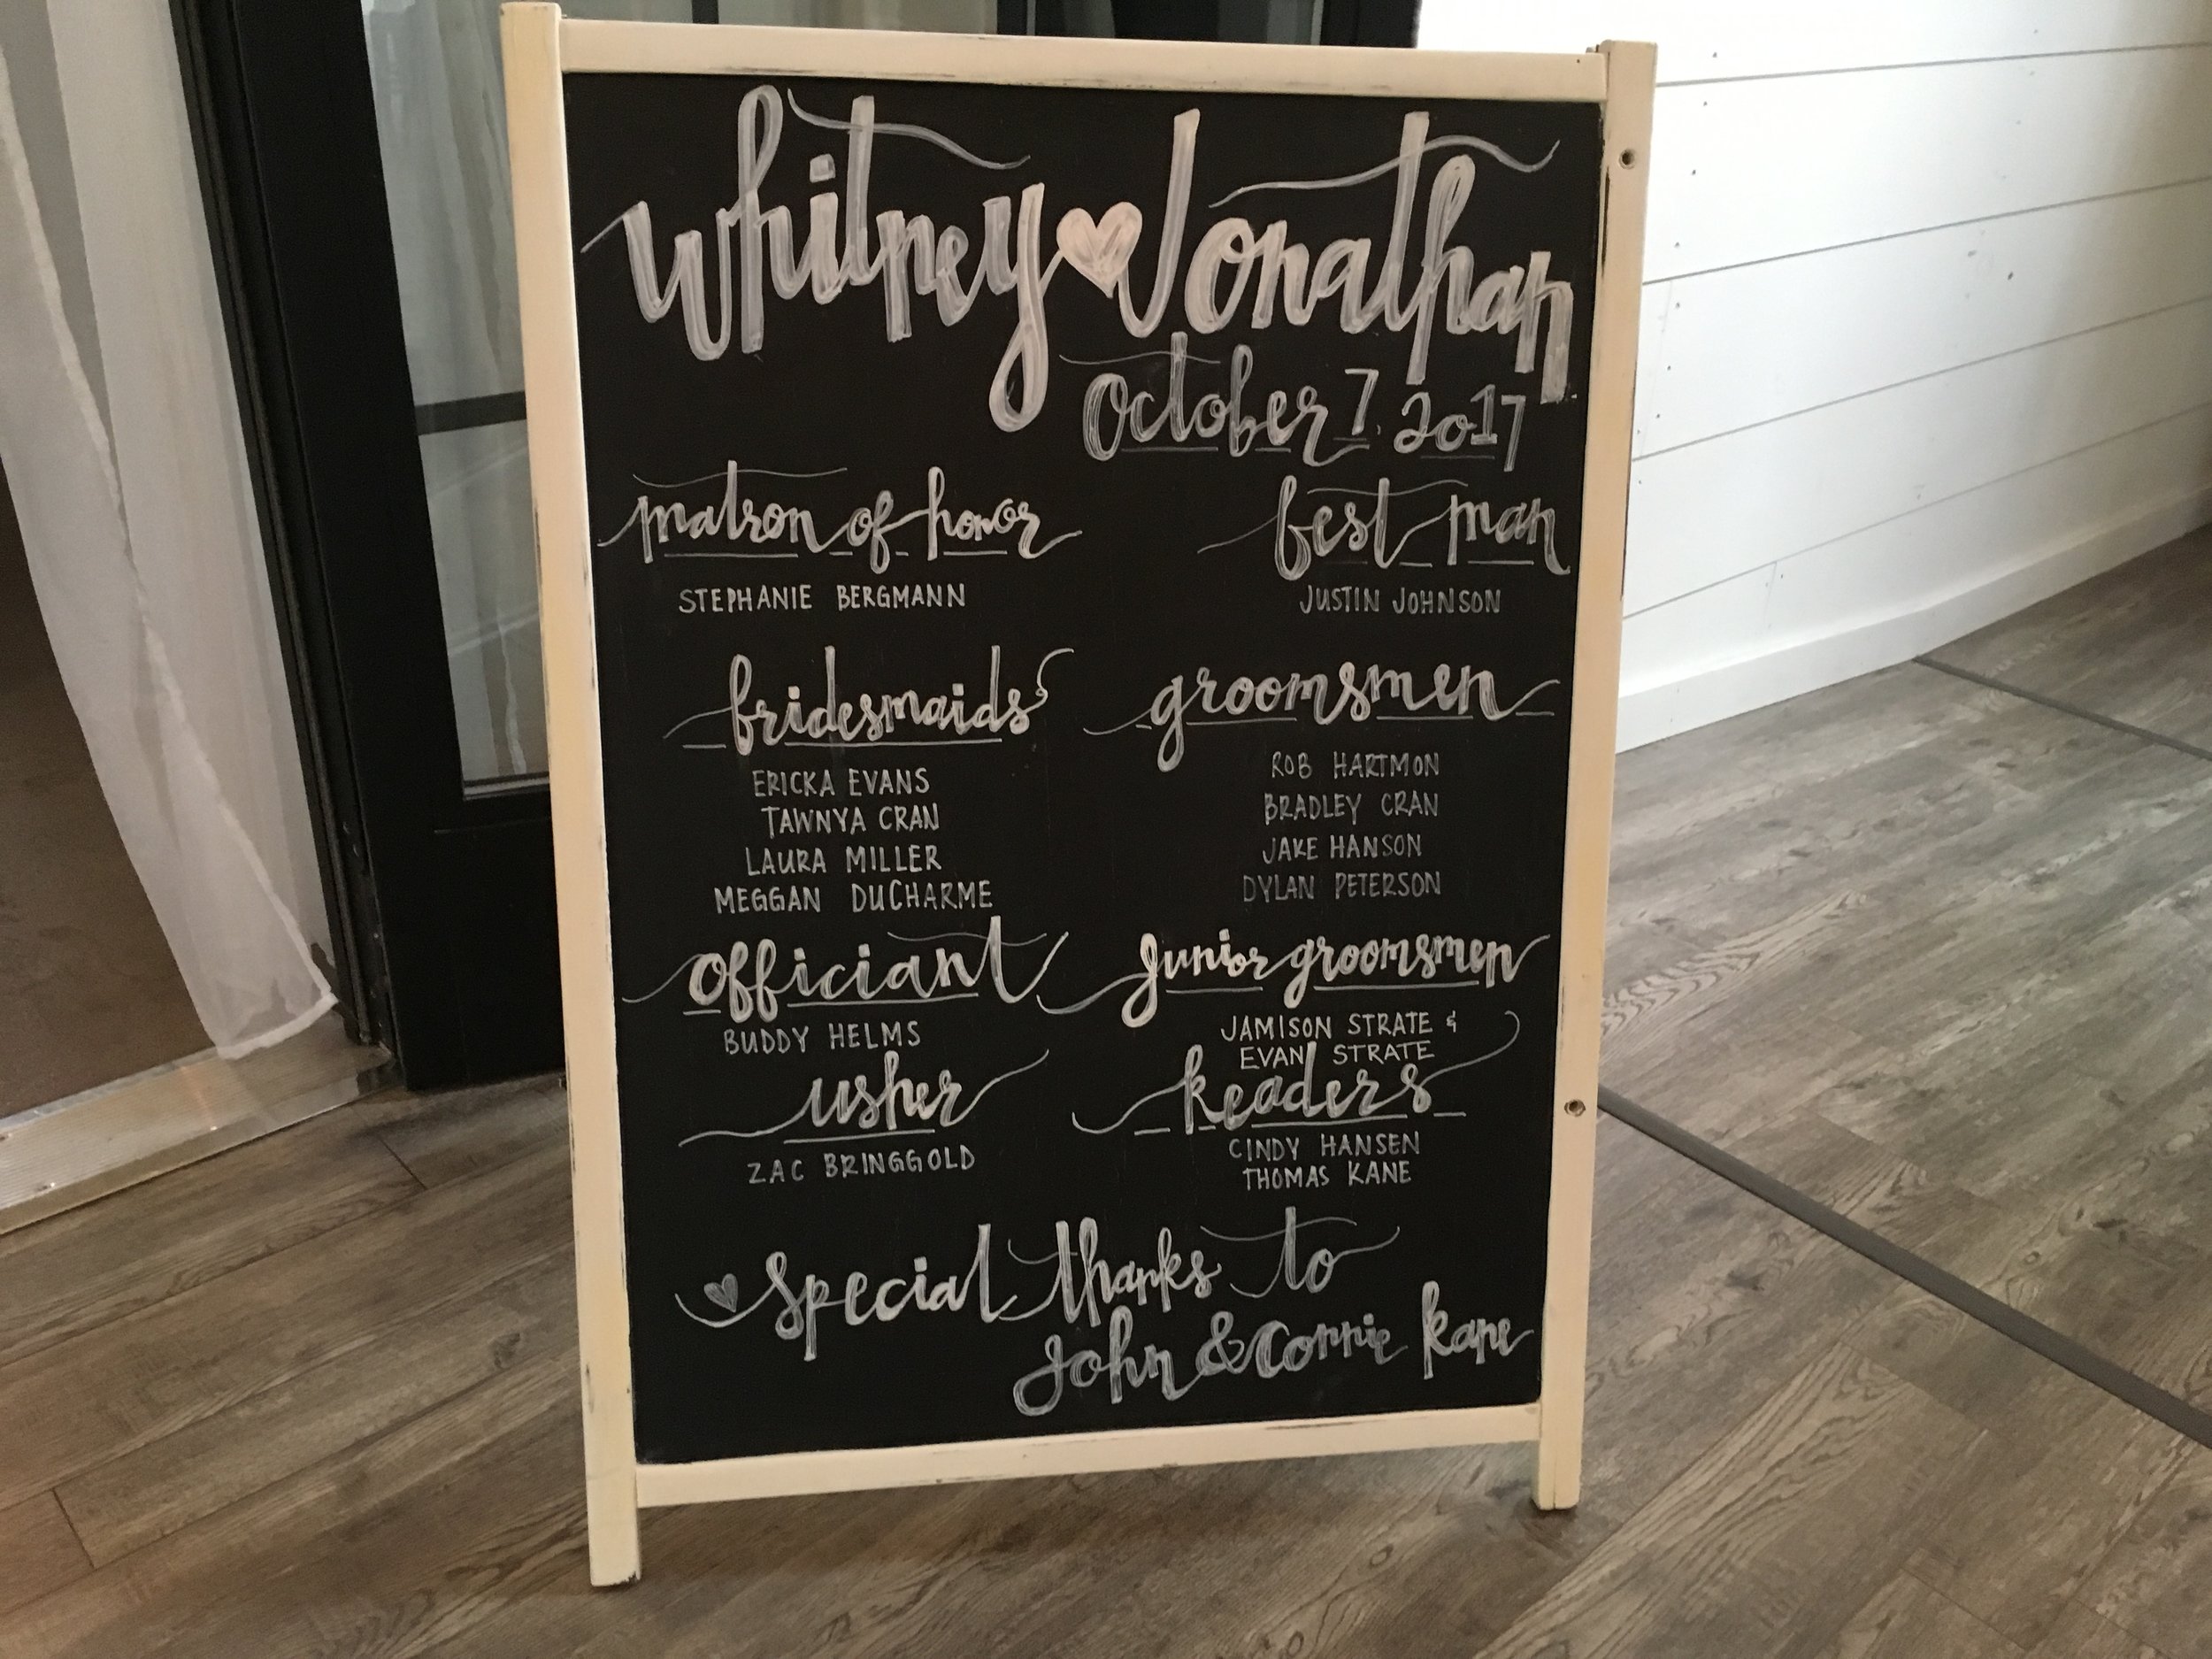 whitney ♥ Jonathan
October 7, 2017
matron of honor
STEPHANIE BERGMANN
best man
JUSTIN JOHNSON
bridesmaids
ERICKA EVANS
TAWNYA CRAN
LAURA MILLER
MEGGAN DUCHARME
groomsmen
ROB HARTMON
BRADLEY CRAN
JAKE HANSON
DYLAN PETERSON
officiant
BUDDY HELMS
junior groomsmen
JAMISON STRATE &
EVAN STRATE
usher
ZAC BRINGGOLD
readers
CINDY HANSEN
THOMAS KANE
♥ special thanks to
John & Connie Kane